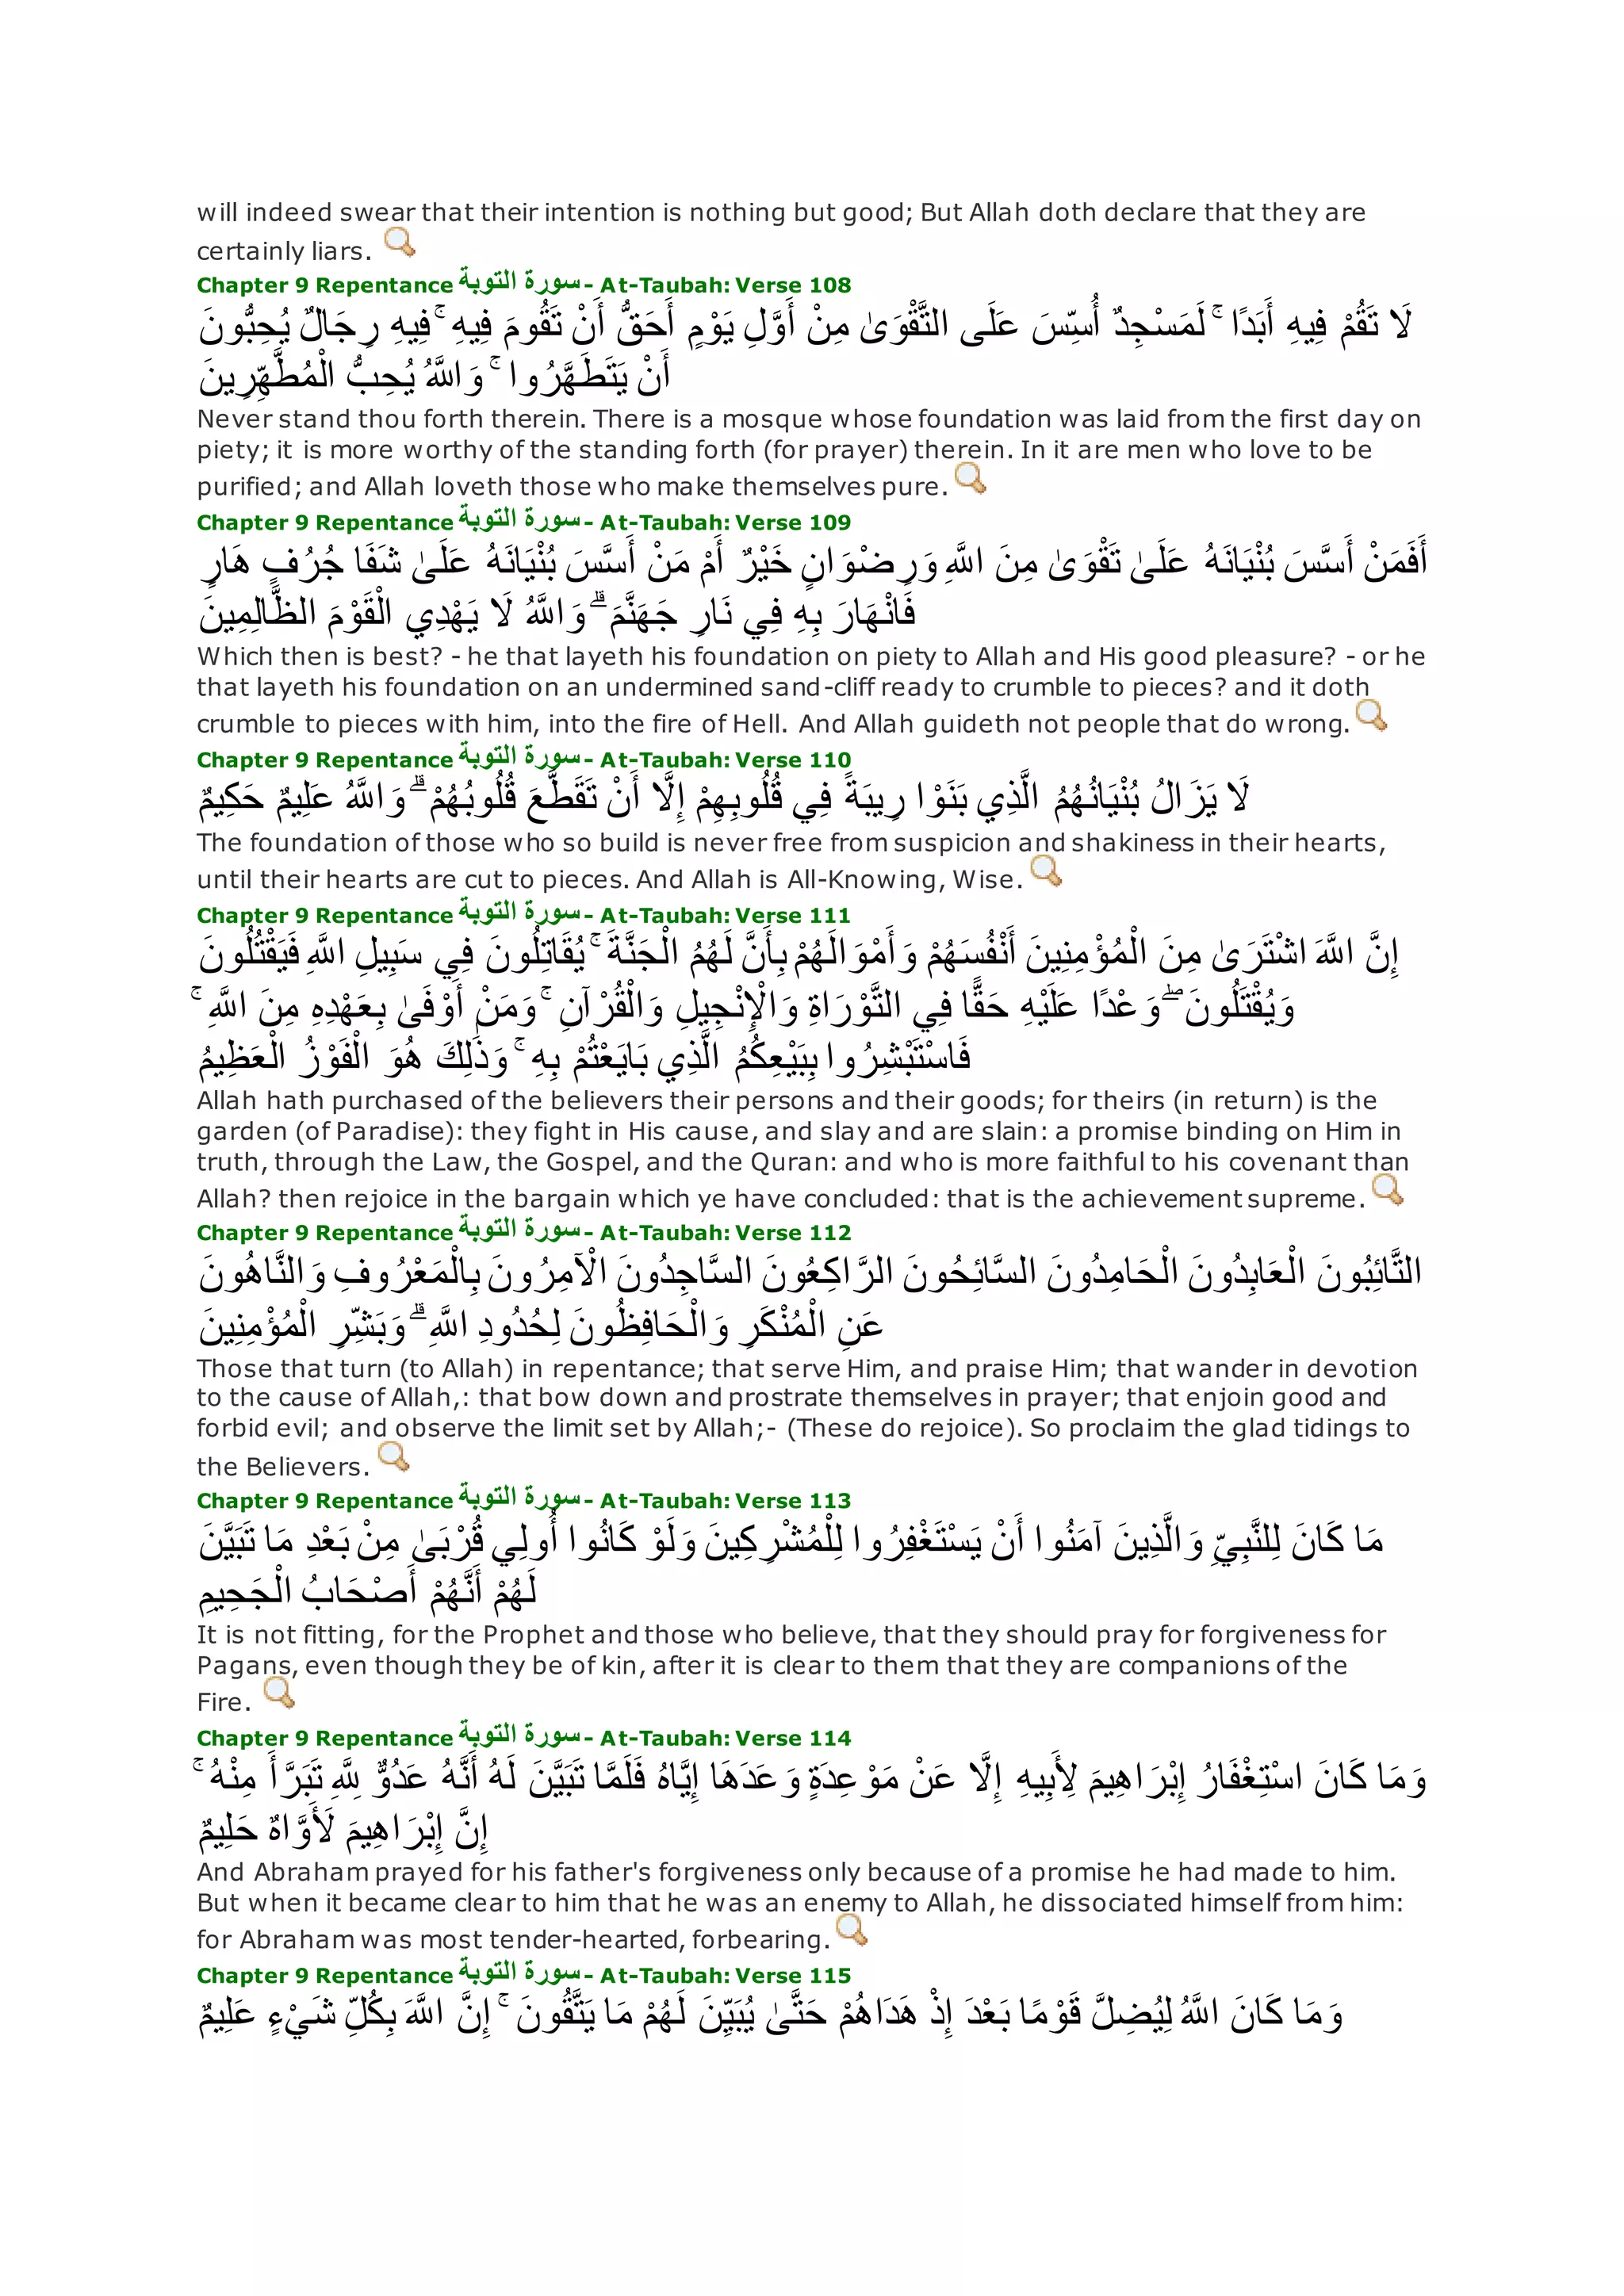 will indeed swear that their intention is nothing but good; But Allah doth declare that they are
certainly liars.
Chapter 9 Repentance سورة التوبة - At-Taubah: Verse 108
لَا تَقُمْ فِيهِ أَبَدًا ۚ لَمَسْجِدٌ أُسِّسَ عَلَى التَّقْوَىٰ مِنْ أَوَّلِ يَوْمٍ أَحَقُّ أَنْ تَقُومَ فِيهِ ۚ فِيهِ رِجَالٌ يُحِبُّونَ
أَنْ يَتَطَهَّرُوا ۚ وَاللَّهُ يُحِبُّ الْمُطَّهِّرِينَ
Never stand thou forth therein. There is a mosque whose foundation was laid from the first day on
piety; it is more worthy of the standing forth (for prayer) therein. In it are men who love to be
purified; and Allah loveth those who make themselves pure.
Chapter 9 Repentance سورة التوبة - At-Taubah: Verse 109
أَفَمَنْ أَسَّسَ بُنْيَانَهُ عَلَىٰ تَقْوَىٰ مِنَ اللَّهِ وَرِضْوَانٍ خَيْرٌ أَمْ مَنْ أَسَّسَ بُنْيَانَهُ عَلَىٰ شَفَا جُرُفٍ هَارٍ
فَانْهَارَ بِهِ فِي نَارِ جَهَنَّمَ ۗ وَاللَّهُ لَا يَهْدِي الْقَوْمَ الظَّالِمِينَ
Which then is best? - he that layeth his foundation on piety to Allah and His good pleasure? - or he
that layeth his foundation on an undermined sand-cliff ready to crumble to pieces? and it doth
crumble to pieces with him, into the fire of Hell. And Allah guideth not people that do wrong.
Chapter 9 Repentance سورة التوبة - At-Taubah: Verse 110
لَا يَزَالُ بُنْيَانُهُمُ الَّذِي بَنَوْا رِيبَةً فِي قُلُوبِهِمْ إِلَّا أَنْ تَقَطَّعَ قُلُوبُهُمْ ۗ وَاللَّهُ عَلِيمٌ حَكِيمٌ
The foundation of those who so build is never free from suspicion and shakiness in their hearts,
until their hearts are cut to pieces. And Allah is All-Knowing, Wise.
Chapter 9 Repentance سورة التوبة - At-Taubah: Verse 111
إِنَّ اللَّهَ اشْتَرَىٰ مِنَ الْمُؤْمِنِينَ أَنْفُسَهُمْ وَأَمْوَالَهُمْ بِأَنَّ لَهُمُ الْجَنَّةَ ۚ يُقَاتِلُونَ فِي سَبِيلِ اللَّهِ فَيَقْتُلُونَ
وَيُقْتَلُونَ ۖ وَعْدًا عَلَيْهِ حَقًّا فِي التَّوْرَاةِ وَالْإِنْجِيلِ وَالْقُرْآنِ ۚ وَمَنْ أَوْفَىٰ بِعَهْدِهِ مِنَ اللَّهِ ۚ
فَاسْتَبْشِرُوا بِبَيْعِكُمُ الَّذِي بَايَعْتُمْ بِهِ ۚ وَذَٰلِكَ هُوَ الْفَوْزُ الْعَظِيمُ
Allah hath purchased of the believers their persons and their goods; for theirs (in return) is the
garden (of Paradise): they fight in His cause, and slay and are slain: a promise binding on Him in
truth, through the Law, the Gospel, and the Quran: and who is more faithful to his covenant than
Allah? then rejoice in the bargain which ye have concluded: that is the achievement supreme.
Chapter 9 Repentance سورة التوبة - At-Taubah: Verse 112
التَّائِبُونَ الْعَابِدُونَ الْحَامِدُونَ السَّائِحُونَ الرَّاكِعُونَ السَّاجِدُونَ الْآمِرُونَ بِالْمَعْرُوفِ وَالنَّاهُونَ
عَنِ الْمُنْكَرِ وَالْحَافِظُونَ لِحُدُودِ اللَّهِ ۗ وَبَشِّرِ الْمُؤْمِنِينَ
Those that turn (to Allah) in repentance; that serve Him, and praise Him; that wander in devotion
to the cause of Allah,: that bow down and prostrate themselves in prayer; that enjoin good and
forbid evil; and observe the limit set by Allah;- (These do rejoice). So proclaim the glad tidings to
the Believers.
Chapter 9 Repentance سورة التوبة - At-Taubah: Verse 113
مَا كَانَ لِلنَّبِيِّ وَالَّذِينَ آمَنُوا أَنْ يَسْتَغْفِرُوا لِلْمُشْرِكِينَ وَلَوْ كَانُوا أُولِي قُرْبَىٰ مِنْ بَعْدِ مَا تَبَيَّنَ
لَهُمْ أَنَّهُمْ أَصْحَابُ الْجَحِيمِ
It is not fitting, for the Prophet and those who believe, that they should pray for forgiveness for
Pagans, even though they be of kin, after it is clear to them that they are companions of the
Fire.
Chapter 9 Repentance سورة التوبة - At-Taubah: Verse 114
وَمَا كَانَ اسْتِغْفَارُ إِبْرَاهِيمَ لِأَبِيهِ إِلَّا عَنْ مَوْعِدَةٍ وَعَدَهَا إِيَّاهُ فَلَمَّا تَبَيَّنَ لَهُ أَنَّهُ عَدُوٌّ لِلَّهِ تَبَرَّأَ مِنْهُ ۚ
إِنَّ إِبْرَاهِيمَ لَأَوَّاهٌ حَلِيمٌ
And Abraham prayed for his father's forgiveness only because of a promise he had made to him.
But when it became clear to him that he was an enemy to Allah, he dissociated himself from him:
for Abraham was most tender-hearted, forbearing.
Chapter 9 Repentance سورة التوبة - At-Taubah: Verse 115
وَمَا كَانَ اللَّهُ لِيُضِلَّ قَوْمًا بَعْدَ إِذْ هَدَاهُمْ حَتَّىٰ يُبَيِّنَ لَهُمْ مَا يَتَّقُونَ ۚ إِنَّ اللَّهَ بِكُلِّ شَيْءٍ عَلِيمٌ